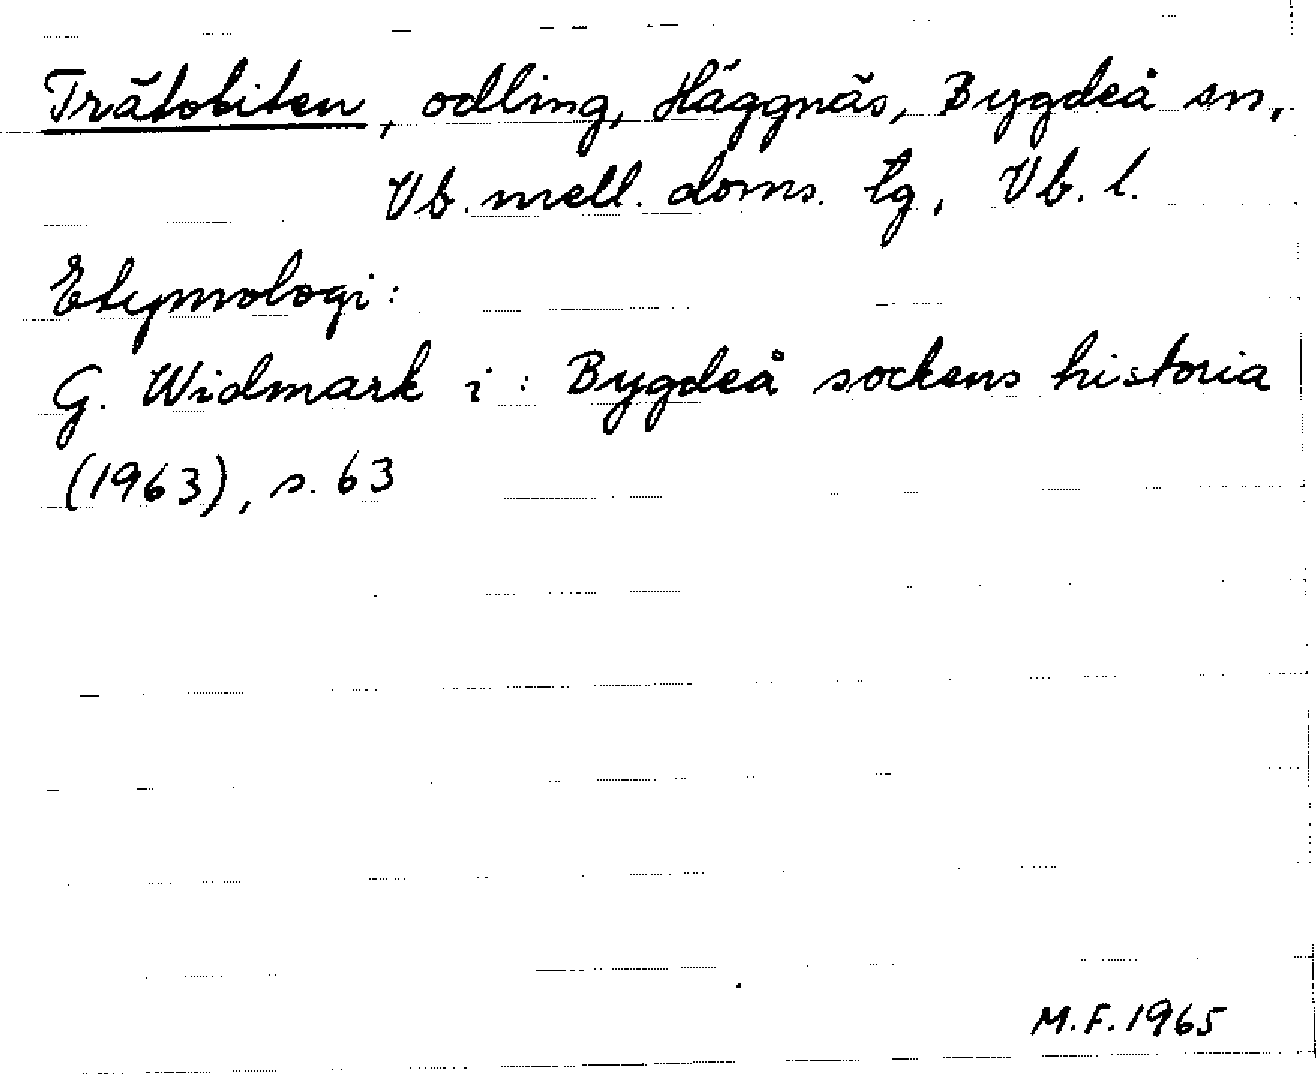 Trätobiten, odling, Häggnäs, Bygdeå sn,
Vb. mell. doms. tg, Vb. l.
Etymologi:
G. Widmark i: Bygdeå sockens historia
(1963), s. 63
M.F. 1965